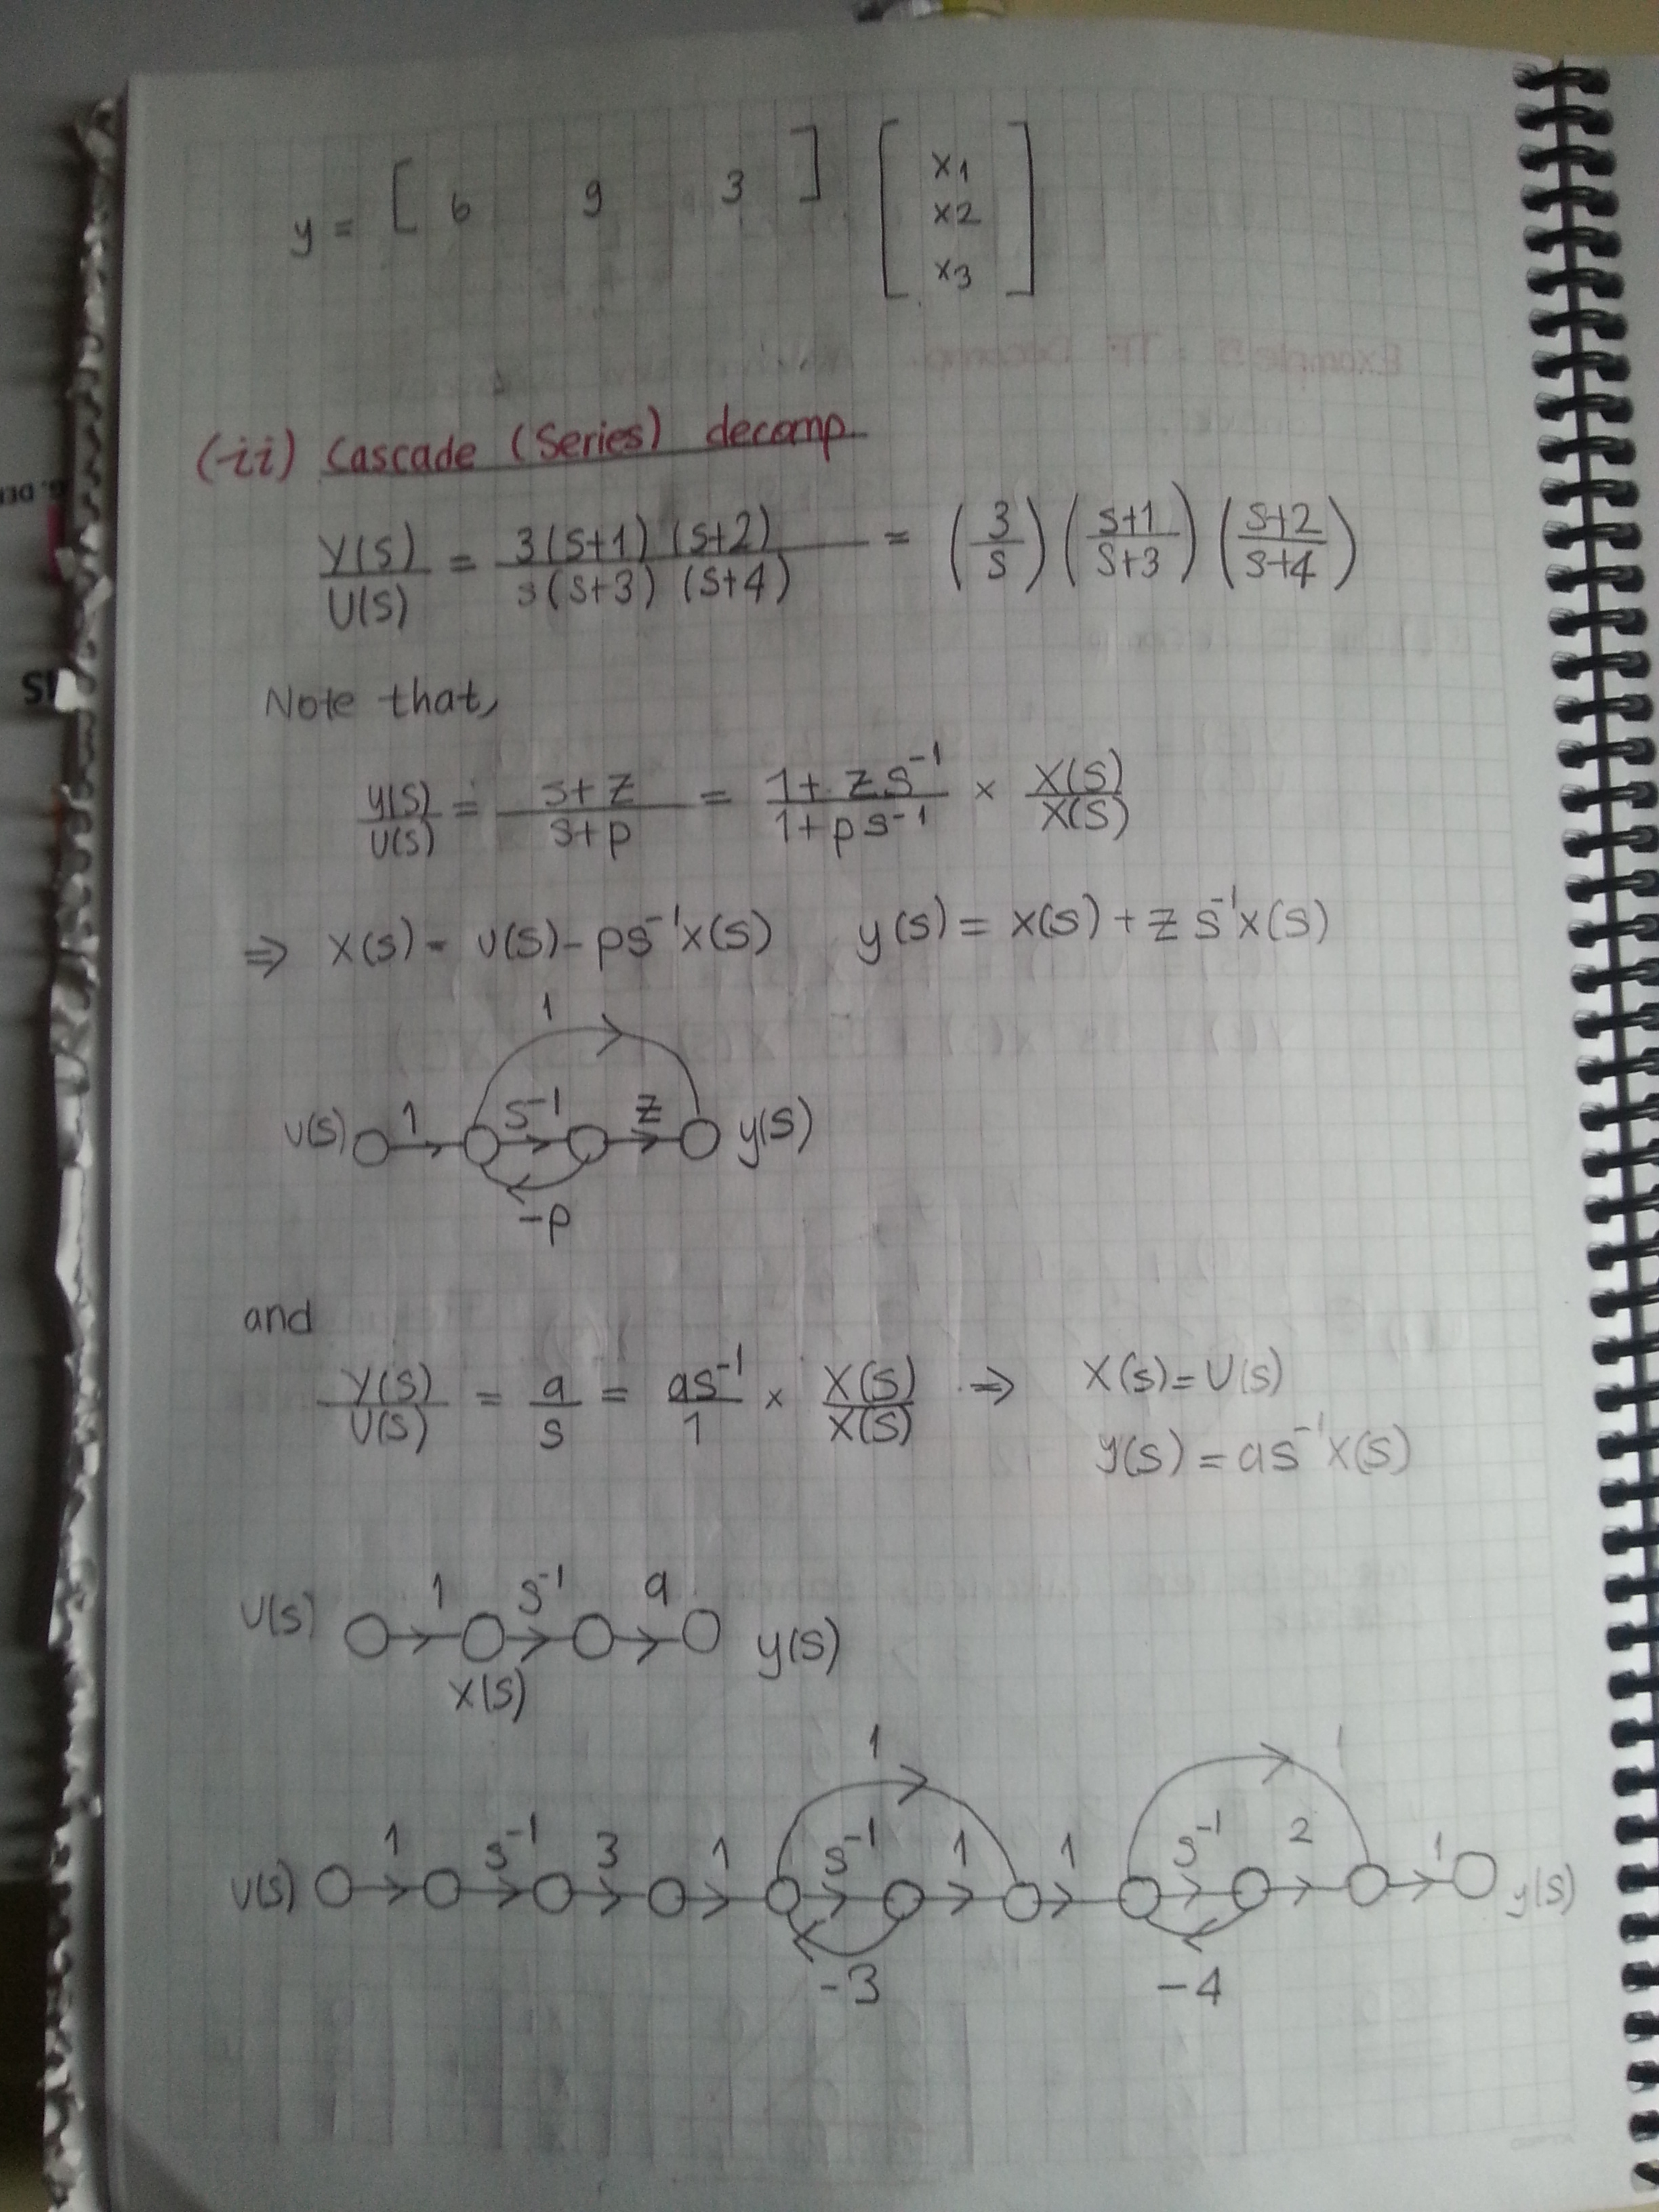 y = [ 6 9 3 ] [ x1 x2 x3 ]
(ii) Cascade (Series) decomp.
Y(s)/U(s) = 3(s+1)(s+2) / s(s+3)(s+4) = (3/s) (s+1/s+3) (s+2/s+4)
Note that,
y(s)/U(s) = s+z / s+p = 1+zs⁻¹ / 1+ps⁻¹ × X(s)/X(s)
⇒ X(s) = U(s) - ps⁻¹X(s) y(s) = X(s) + zs⁻¹X(s)
1
U(s) 1 s⁻¹ z y(s)
-p
and
Y(s)/U(s) = a/s = as⁻¹/1 × X(s)/X(s) ⇒ X(s) = U(s)
y(s) = as⁻¹X(s)
U(s) 1 s⁻¹ a y(s)
X(s)
1 1
U(s) 1 s⁻¹ 3 1 s⁻¹ 1 1 s⁻¹ 2 1 y(s)
-3 -4